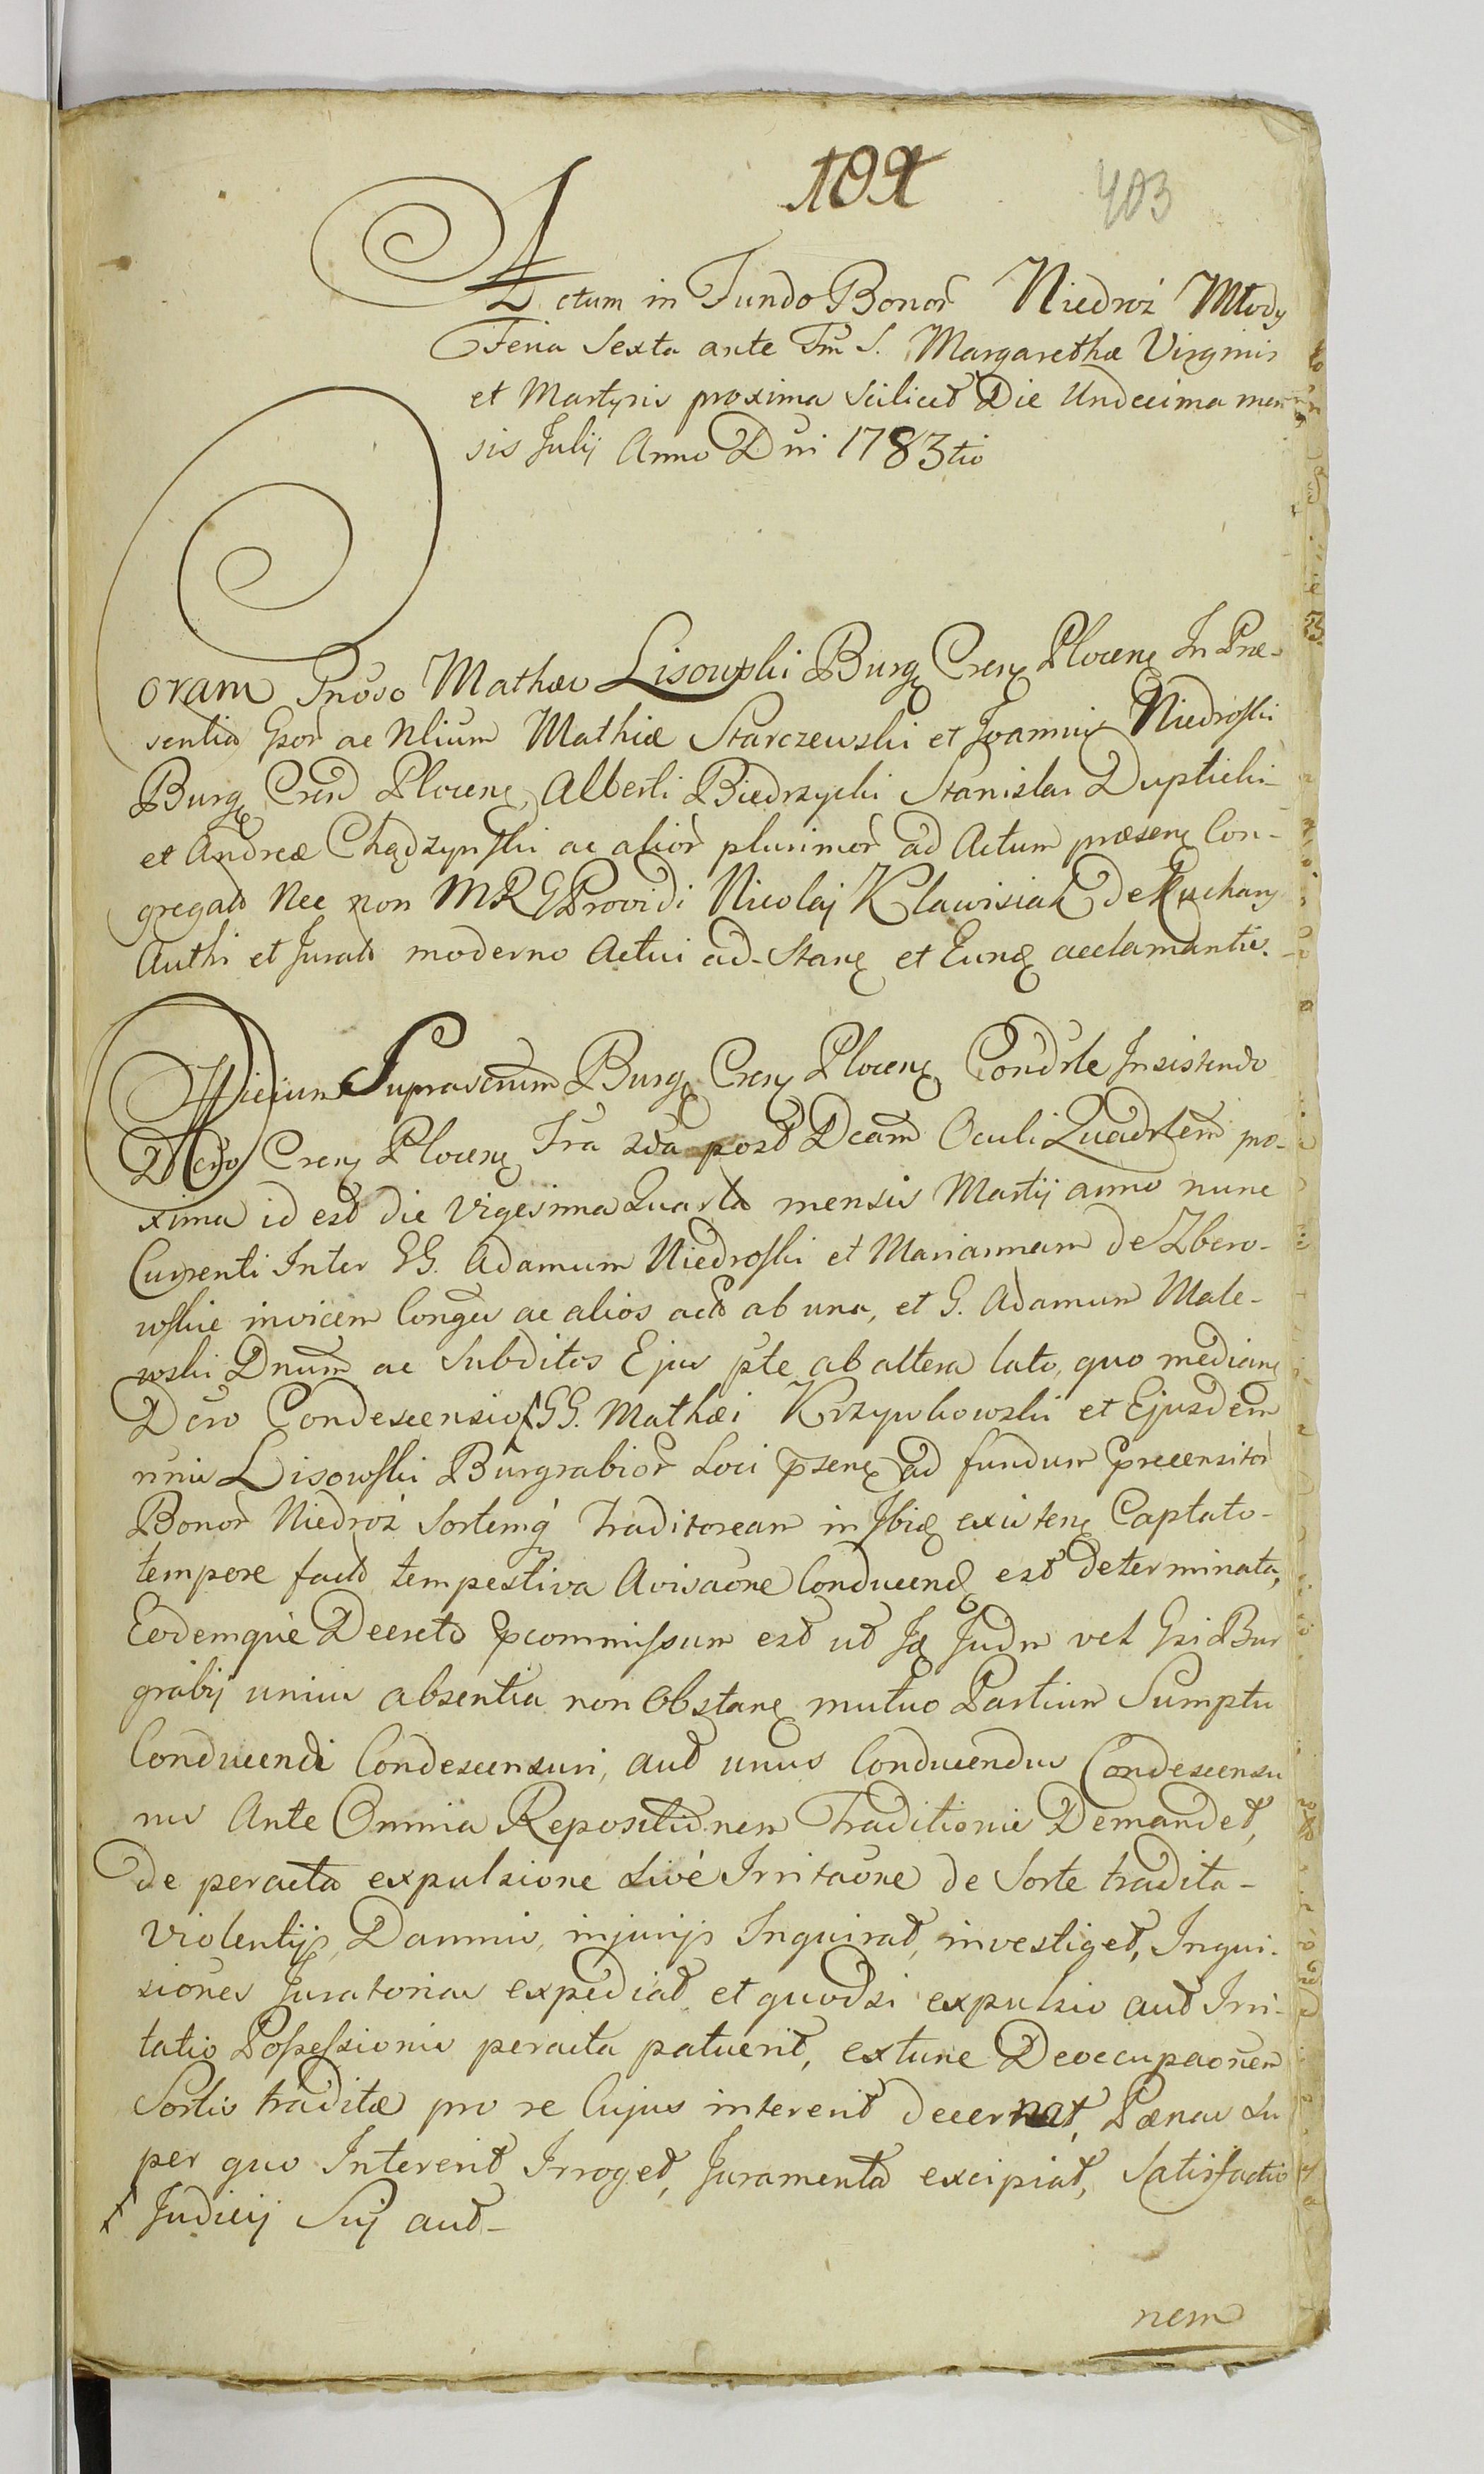 109
403
Actum in Fundo Bonor Niedroż Młody
Feria Sexta ante Fm S. Margarethæ Virginis
et Martyris proxima scilicet Die Undecima men
sis Julij Anno Dni 1783tio
Coram Mathæo Lisowski Burg Cren Plocen In Præ-
sentia Gsor ac Nlium Mathiæ Starczewski et Joannis Niedroski
Burg Cren Plocen, Alberti Biedrzycki Stanislai Duplicki
et Andreæ Chądzynski ac alior plurimor ad Actum præsen Con-
gregat Nec non MR GProvidi Nicolaj Klawisiak de Kuchary
Authi et Jurati moderno Actui ad-stan et Eund acclamantis.
Officium Suprascrium Burg Cren Plocen Condrle Insistendo
Dcro Cren Plocen Fra 2da post Dcam Oculi Quadrlem pro-
xima id est die Vigesima Quarta mensis Martij anno nunc
Currenti Inter GG. Adamum Niedroski et Mariannam de Zbero-
wskie invicem Conges ac alios act ab una, et G. Adamum Male-
wski Dnum ac Subditos Ejus pte ab altera lato, quo median
Dcro Condescensio ł GG. Mathæi Krzywkowski et Ejusdem
nnis Lisowski Burgrabior Loci psen ad fundum precensitor
Bonor Niedroż Sortemq Traditoream in Ibid existen Captato-
tempore facto tempestiva Avisaone Conducend est determinata,
Eodemque Decreto commissum est ut Id Judm vel Gsi Bur
grabij unius absentia non Obstan mutuo Partium Sumptu
Conducendi Condescensuri, aut unus Conducendus Condescensu
rus Ante Omnia Repositionem Traditionis Demandet,
de peracta expulsione sive Irritaone de Sorte tradita-
violentijs, Damnis, injurijs Inquirat, investiget, Inqui-
siones Juratorias expediat et quodsi expulsio aut Irri-
tatio Possessionis peracta patuerit, extunc Deoccupaonem
Sortis traditæ pro re Cujus intererit decernat, Pænas su
per quo Intererit Irroget, Juramenta excipiat, Satisfactio
ł Judicij Sui aut-
nem